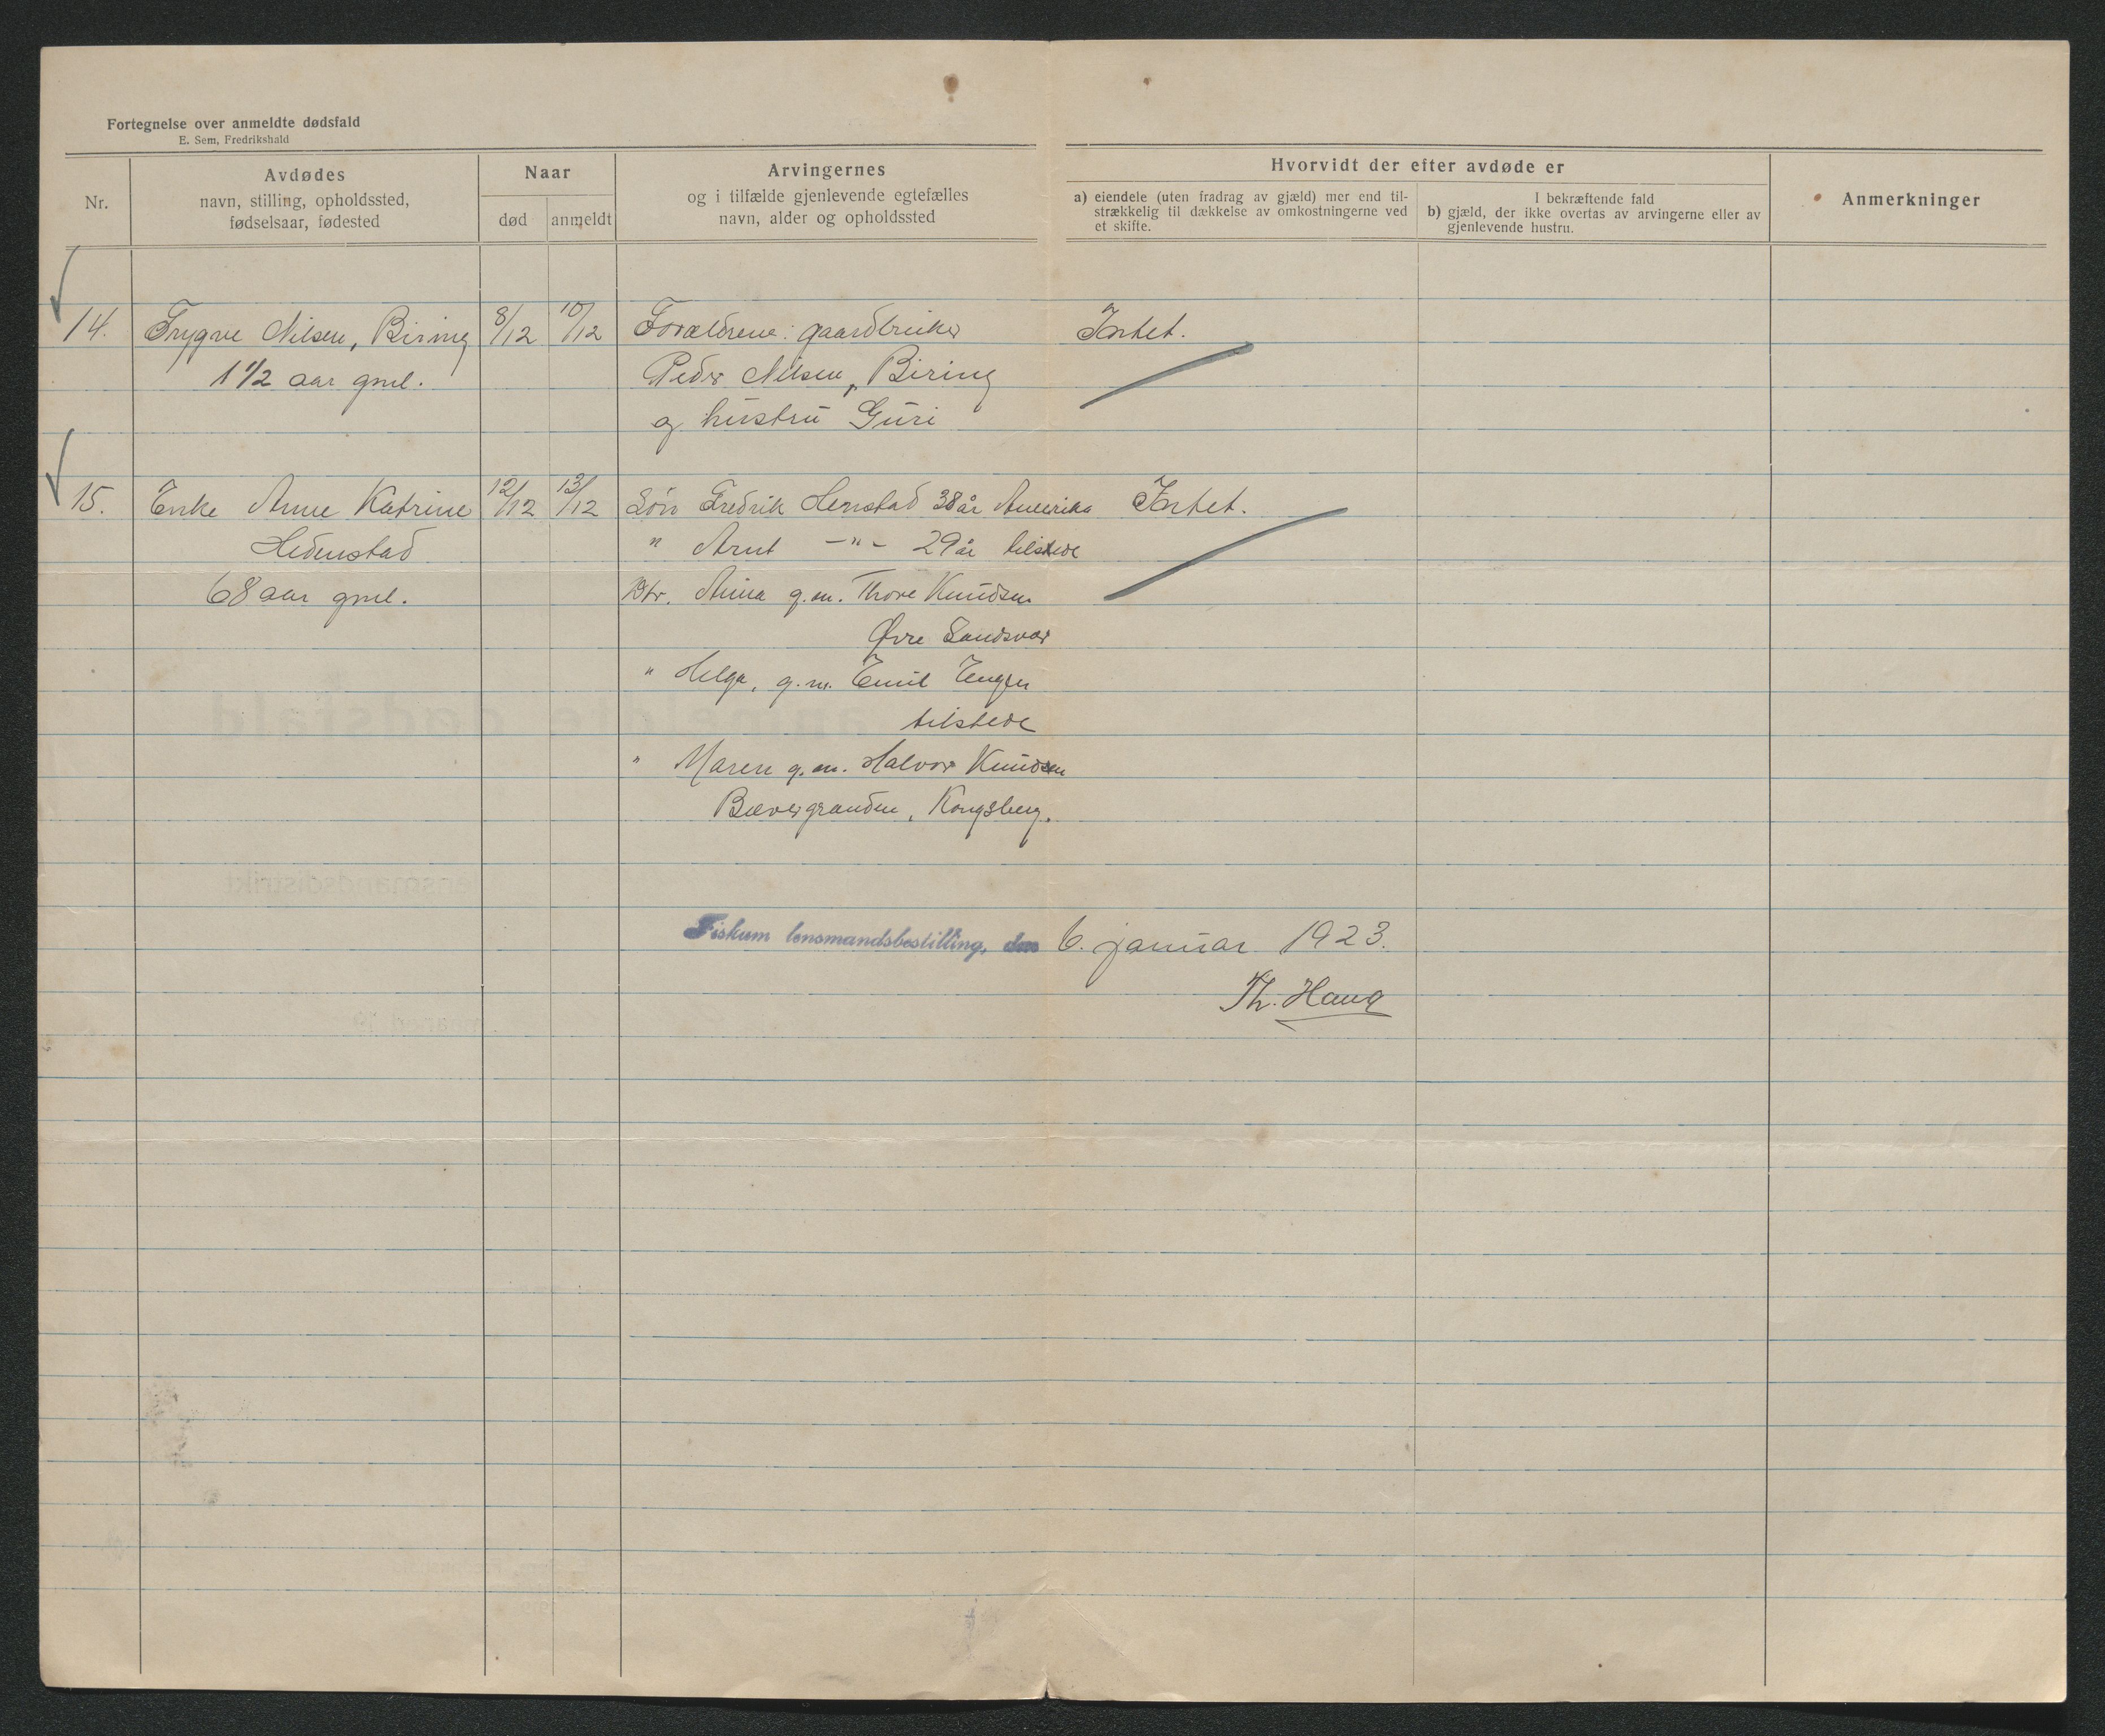 Fortegnelse over anmeldte dødsfald
E. Sem, Fredrikshald
Nr.
Avdødes
navn, stilling, opholdssted,
fødselsaar, fødested
Naar
død
anmeldt
Arvingernes
og i tilfælde gjenlevende egtefælles
navn, alder og opholdssted
Hvorvidt der efter avdøde er
a) eiendele (uten fradrag av gjæld) mer end til-
strækkelig til dækkelse av omkostningerne ved
et skifte.
I bekræftende fald
b) gjæld, der ikke overtas av arvingerne eller av
gjenlevende hustru.
Anmerkninger
14. Trygve Nilsen, Biring 8/12 10/12 Forældrene: gaardbruker Intet.
1 1/2 aar gml. Peder Nilsen, Biring
og hustru Guri
15. Enke Anne Katrine 12/12 13/12 Søn Fredrik Henstad 38 år Amerika Intet.
Hedenstad " Arnt -"- 29 år tilstede
68 aar gml. Dtr. Anna g.m. Thore Knudsen
Øvre Sandsvær
" Helga, g.m. Emil Engen
tilstede
" Maren g.m. Halvor Knudsen
Bævergranden, Kongsberg.
Fiskum lensmandsbestilling, den 6. januar 1923.
Th. Haug